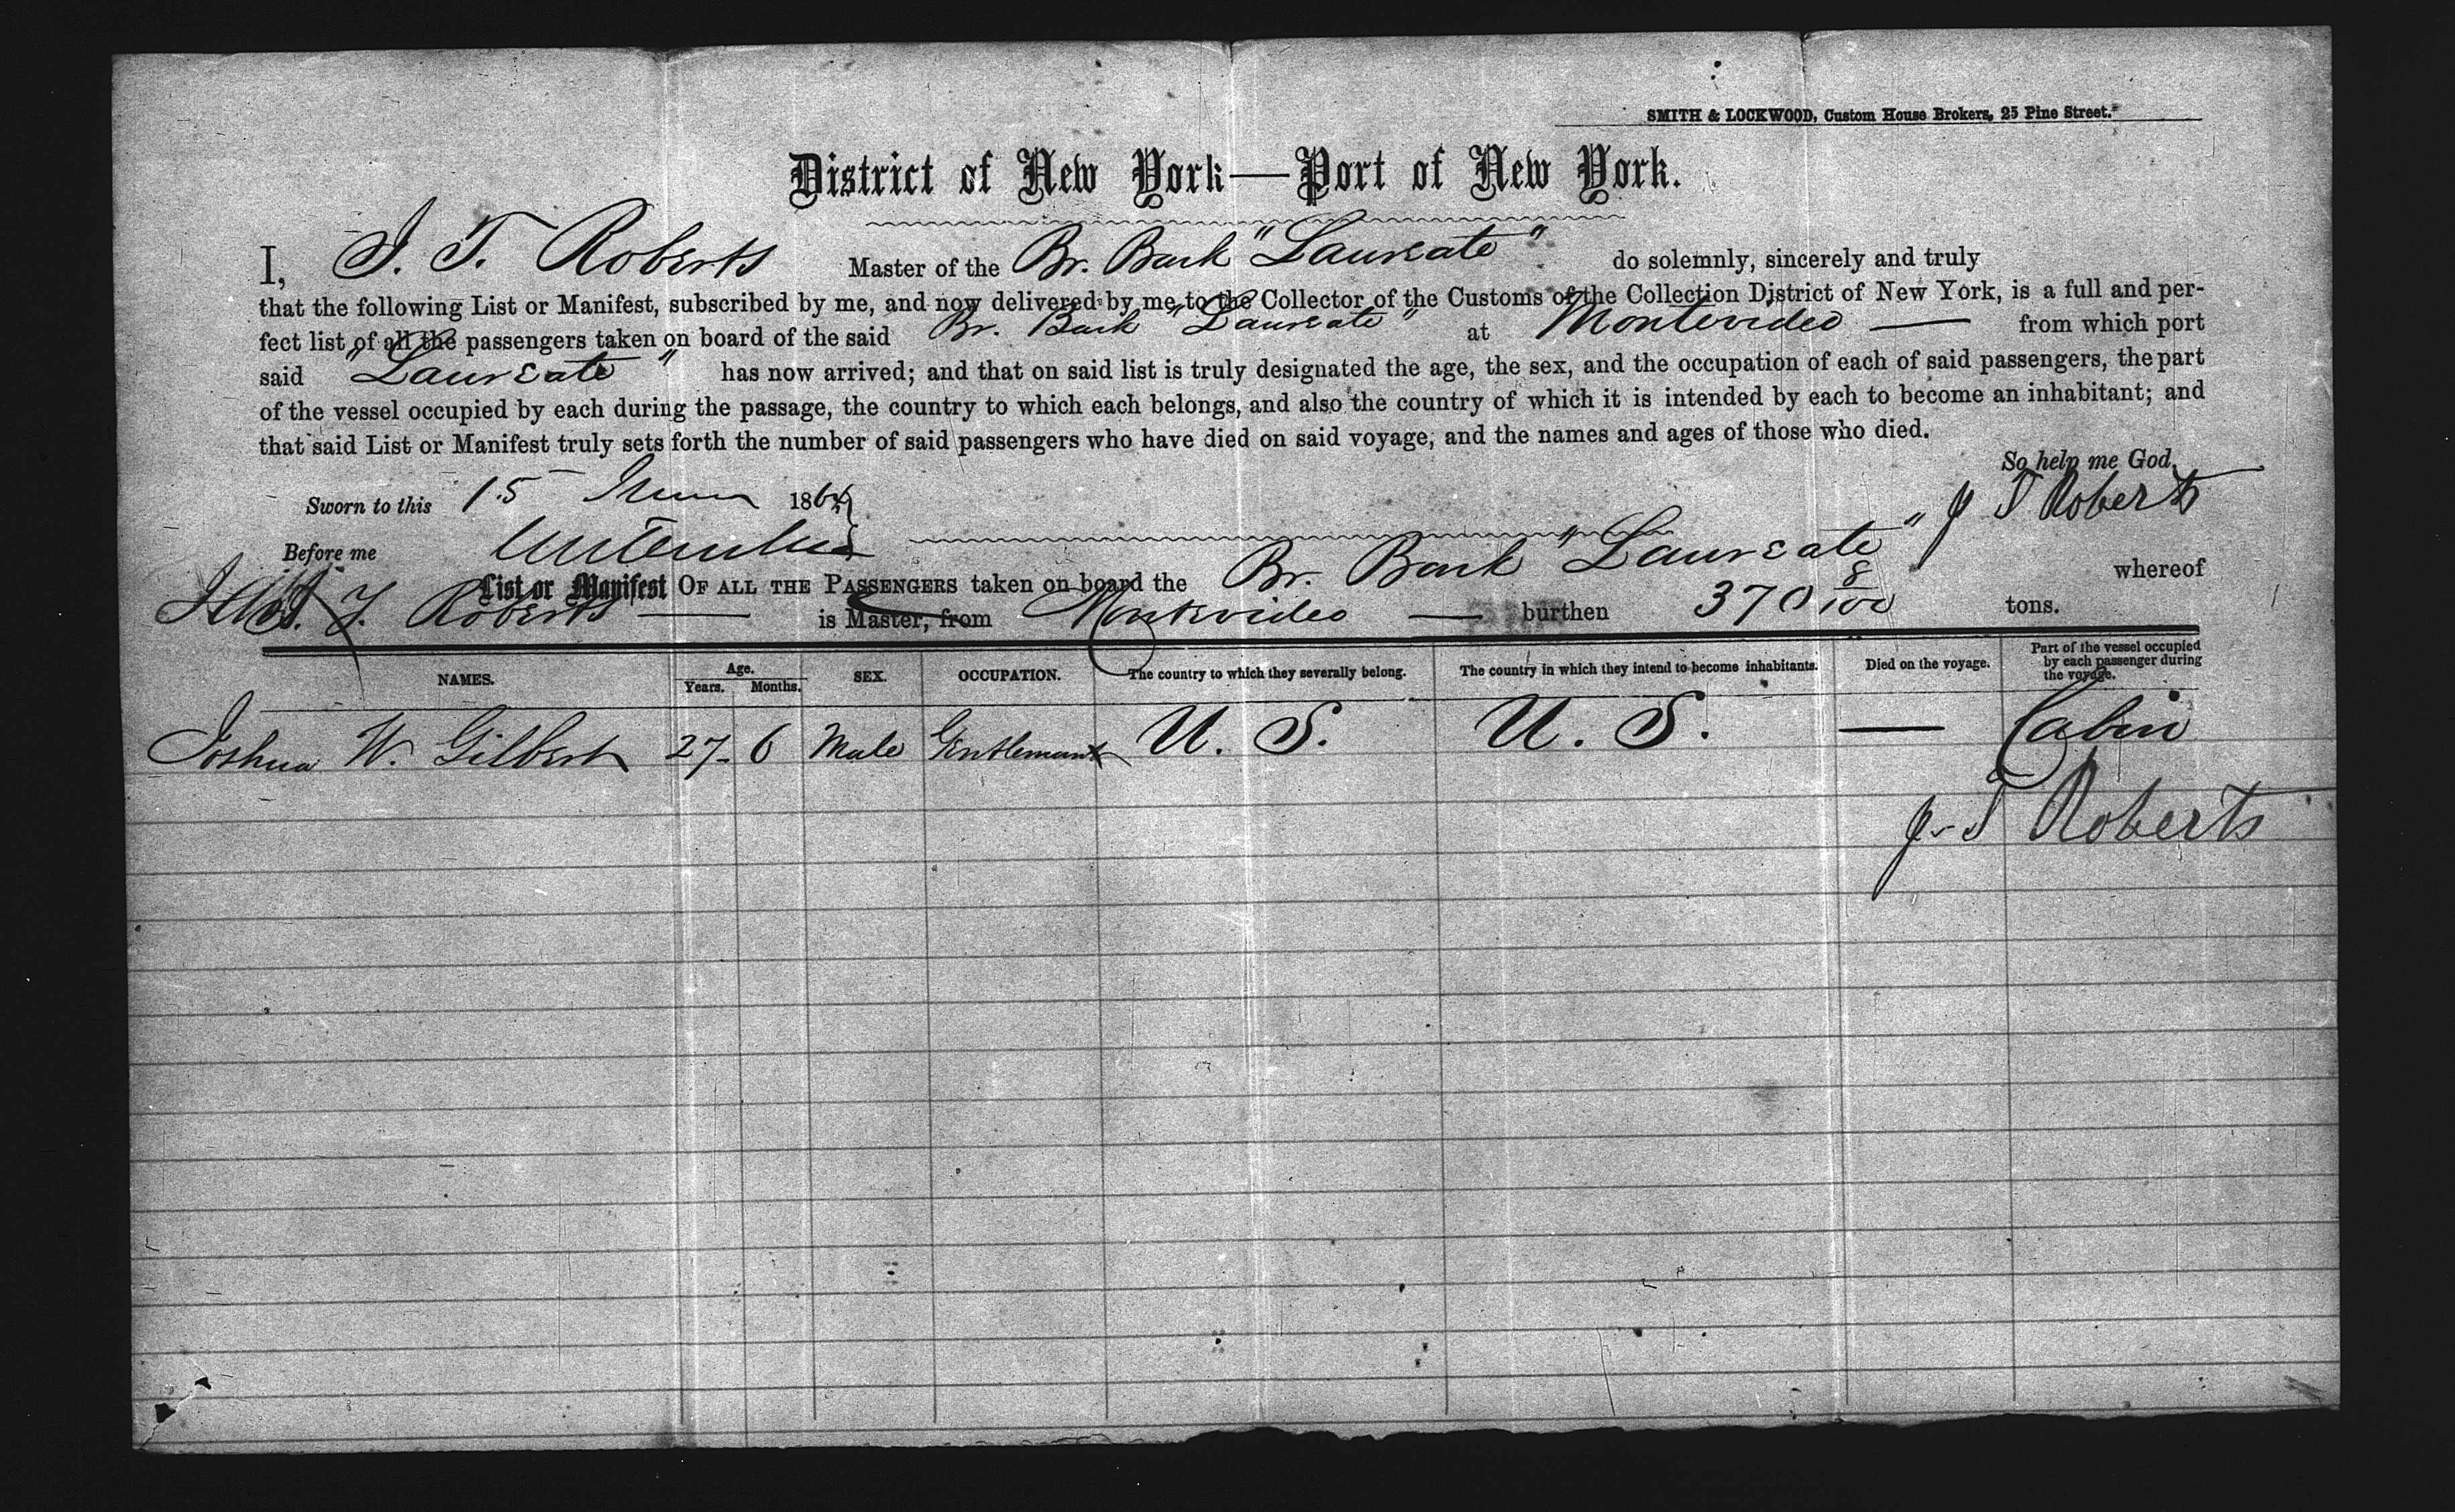 SMITH & LOCKWOOD, Custom House Brokers, 25 Pine Street.
District of New York—Port of New York.
I, J. T. Roberts Master of the Br. Bark "Laureate" do solemnly, sincerely and truly
that the following List or Manifest, subscribed by me, and now delivered by me to the Collector of the Customs of the Collection District of New York, is a full and per-
fect list of all the passengers taken on board of the said Br. Bark "Laureate" at Montevideo — from which port
said "Laureate" has now arrived; and that on said list is truly designated the age, the sex, and the occupation of each of said passengers, the part
of the vessel occupied by each during the passage, the country to which each belongs, and also the country of which it is intended by each to become an inhabitant; and
that said List or Manifest truly sets forth the number of said passengers who have died on said voyage, and the names and ages of those who died.
So help me God.
Sworn to this 15 186 J T Roberts
Before me
List or Manifest OF ALL THE PASSENGERS taken on board the Br. Bark "Laureate" whereof
J. T. Roberts — is Master, from Montevideo — burthen 370 8/100 tons.
NAMES. Age. Years. Months. SEX. OCCUPATION. The country to which they severally belong. The country in which they intend to become inhabitants. Died on the voyage. Part of the vessel occupied by each passenger during the voyage.
Joshua W. Gilbert 27 - 6 Male Gentleman U. S. U. S. — Cabin
J. T Roberts